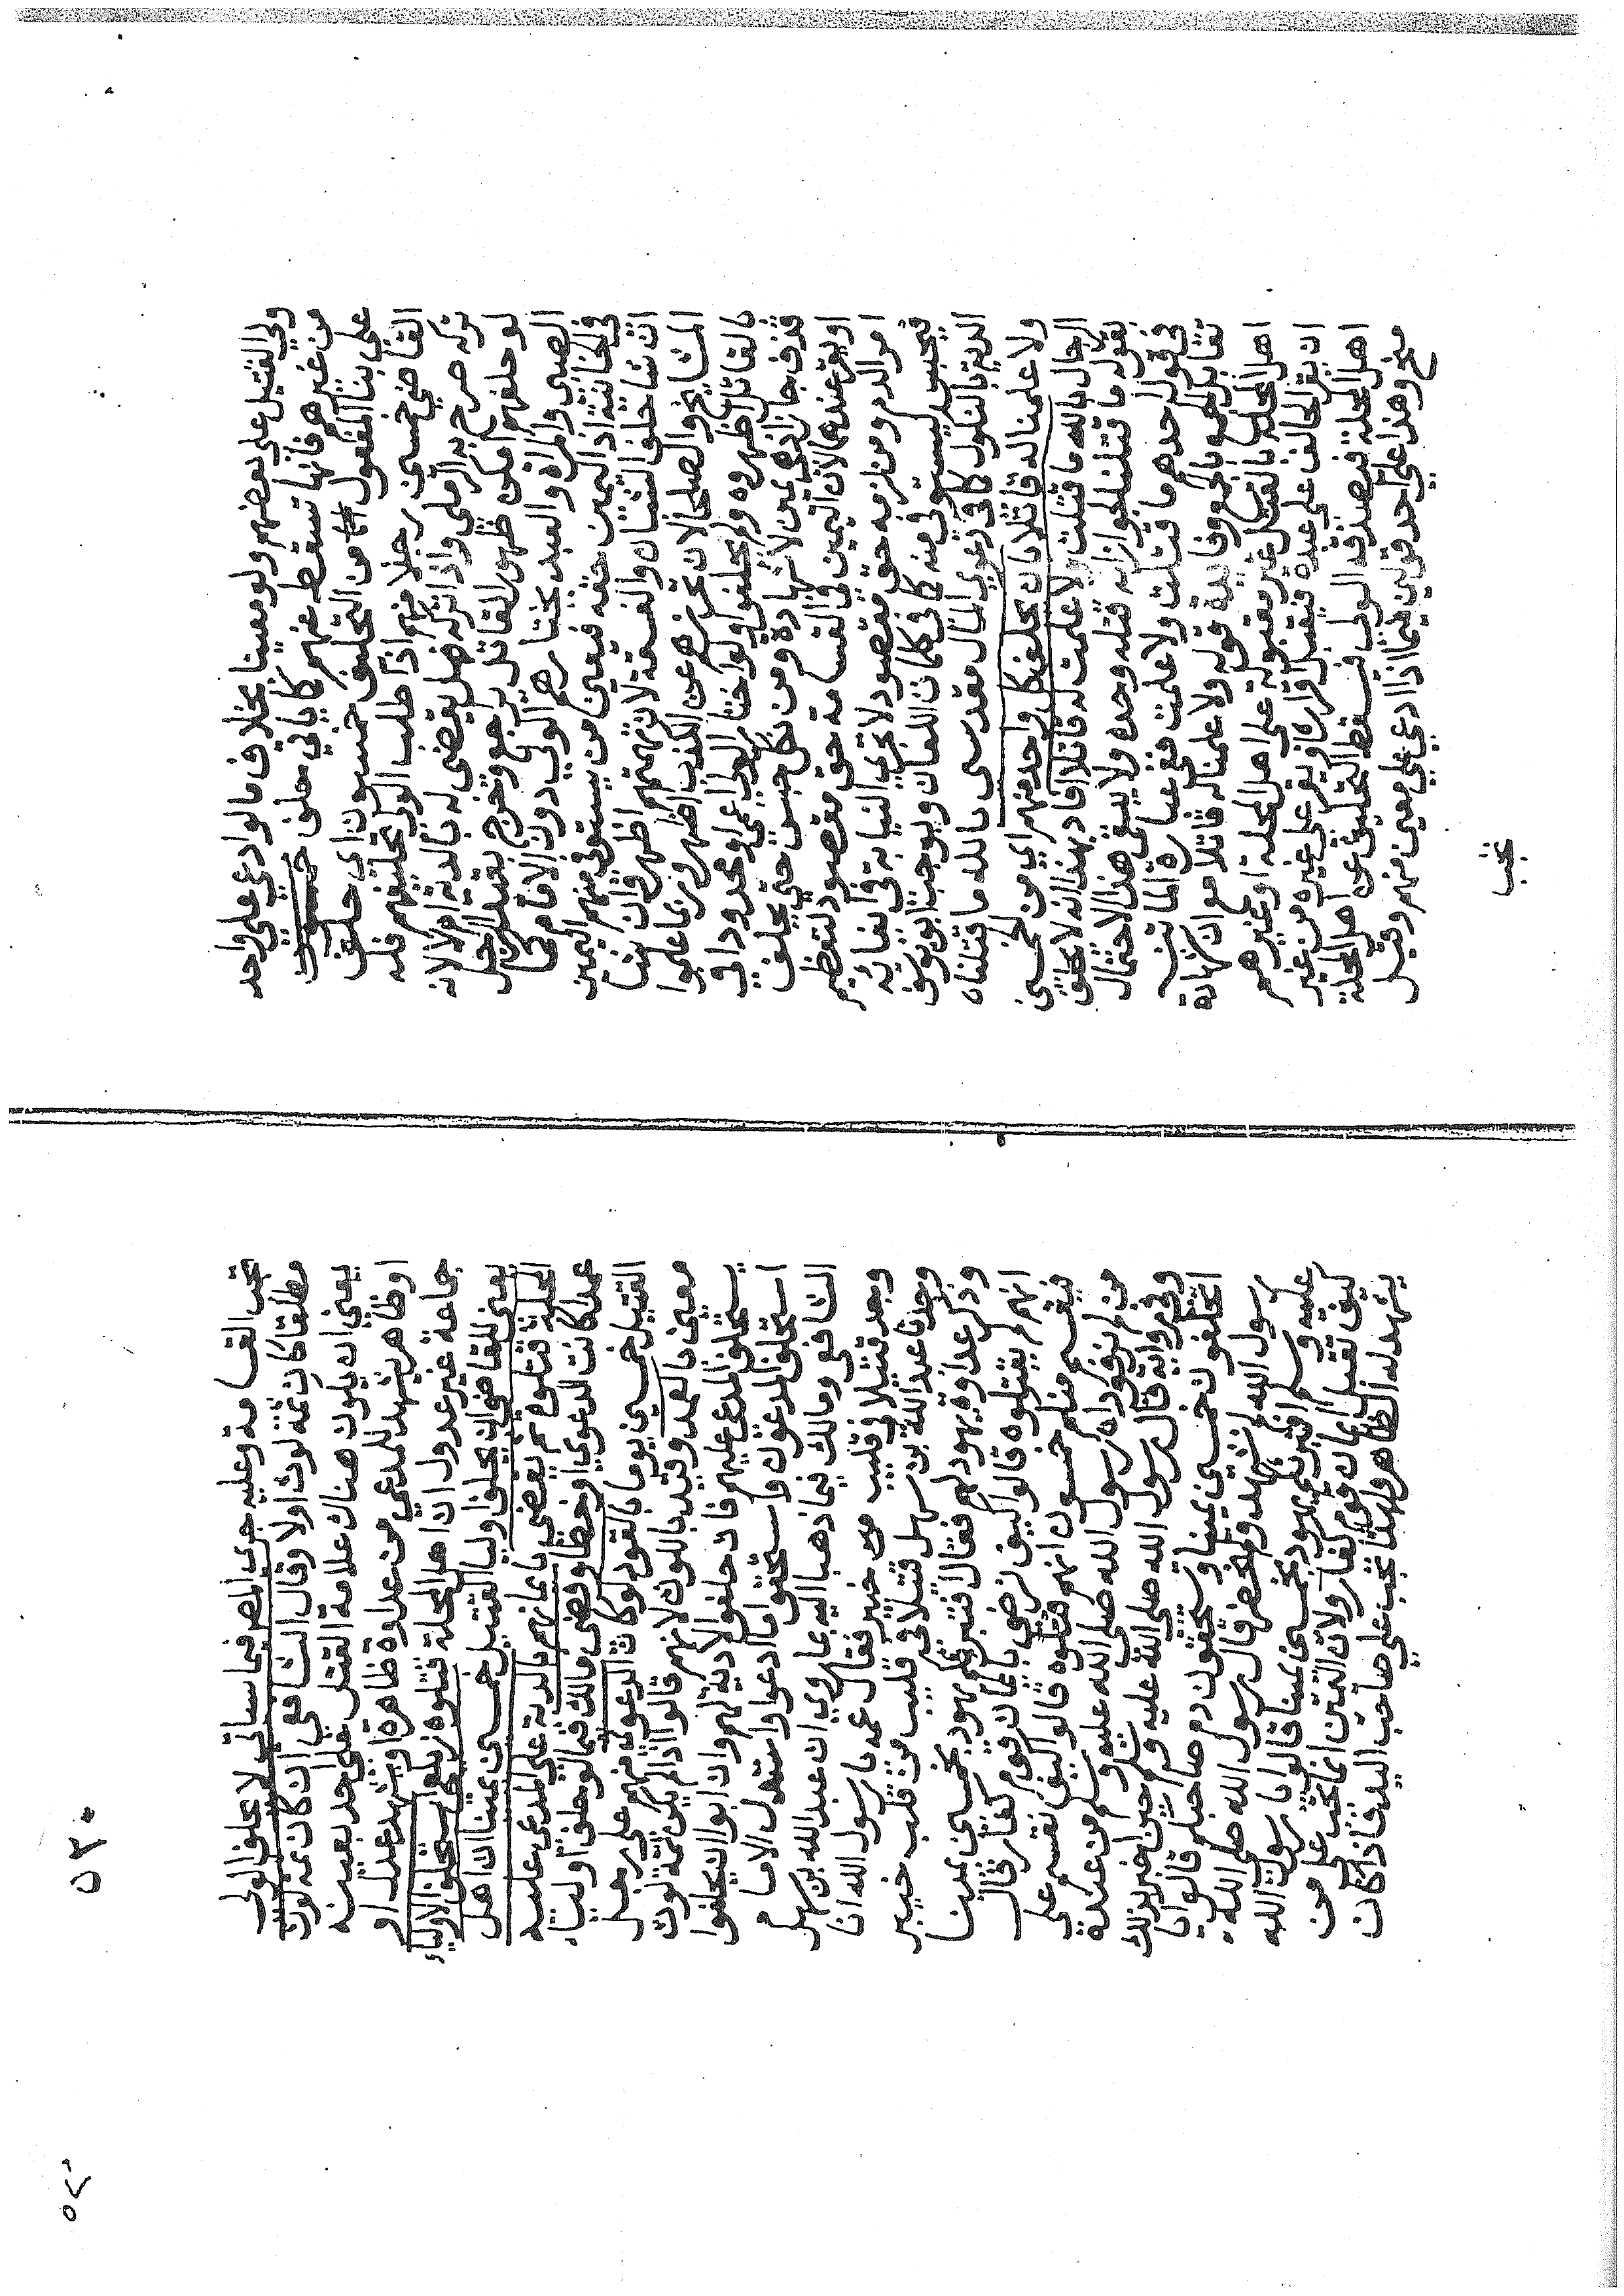 ولي القتيل على بعضهم ولو معينا بخلاف ما لو ادعى على واحد
من غيرهم فانها تسقط عنهم كما ياتي حلف خمسون
على بنا المفعول من التحليف خمسون اي حلف
القاضي خمسين رجلا منهم اذا طلب الولي تحليفهم فله
تركه صرح به الرملي واذا تركه هل يقضى له بالدية ام لا لانه
لو حلفهم امكن ظهور القاتل يراجع وتخرج بقيد الرجل
الصبي والمراة والعبد يختارهم الولي دون الامام كما
في الخانية اذ اليمين حقه فيعين من يستوفي منهم اليمين
ان شا حلف الشبان والفسقة لان تهمتهم اظهر وان شا
المشايخ والصلحا لان تحرزهم عن الكذب اظهر وربما علموا
بالقاتل اظهروه ولم يحلفوا ولو اختار الولي اعمى او محدودا في
قذف جاز اذ هي يمين لا شهادة ومن نكل حبس حتى يحلف
او يقر عندهما لان اليمين في القسامة حق مقصود لتعظيم
امر الدم ومن لزمه حق مقصود لا تجري النيابة في ايفائه
فيحبس ليستوفي منه كما في كلمات اللعان ويوجب ابو يوسف
الدية بالنكول كما في دعوى المال مقدسي بالله ما قتلناه
ولا علمنا له قاتلا بان يحلف كل واحد منهم اي من الخمسين
الرجال بالله ما قتلت ولا علمت له قاتلا افاد بهذا انه لا يحلف
بقوله ما قتلنا لجواز انه قتله وحده ولا ينفى هذا الاحتمال
في قول احدهم ما قتلت ولا علمت ففي عبارة الماتن
تقابل الجمع بالجمع وفايدة قوله ولا علمنا له قاتلا مع ان شهادة
اهل المحلة بالقتل غير مقبولة على اهل المحلة او غيرهم
ان يقر الحالف على عبده فيقبل اقراره او يقر على غيره من غير
اهل المحلة فيصدقه الولي فيسقط التحليف عن اهل المحلة
منح وهذا على احد قولين فيما اذا ادعى على معين منهم وقيل
تجب
٥٢٠
٥٢٠
تجب القسامة وعليه جرى المص فيما سياتي لا يحلف الولي
مطلقا كان ثمة لوث اولا وقال الشافعي ان كان ثمة لوث
يعني ان يكون هناك علامة القتل على احد بعينه
او ظاهر يشهد للمدعي من عداوة ظاهرة او يشهد عدل او
جماعة غير عدول ان اهل المحلة قتلوه استحلف الاولياء
يعني للقاضي ان يحلف اوليا القتيل خمسين يمينا ان اهل
المحلة قتلوه ثم يقضي بايمانهم بالدية على المدعى عليه
عمدا كانت الدعوى او خطا وقضى مالك فيما لو حلف اولياء
القتيل خمسين يوما بالقود لو كان الدعوى منهم على رجل
معين بالعمد وقيد باللوث لانهم قالوا اذا لم يكن ثمة لوث
يستحلف المدعى عليهم فان حلفوا لا دية لهم وان ابوا ان يحلفوا
استحلف المدعون واستحقوا ما ادعوا واستدل الامام
الشافعي ومالك فيما ذهبا اليه بما روي ان عبد الله بن سهل
وجد قتيلا في قليب من خيبر فقال عمه يا رسول الله انا
وجدنا عبد الله بن سهل قتيلا في قليب من قلب خيبر
وذكر عداوة يهود لهم فقال افتبرئكم يهود بخمسين يمينا
انهم لم يقتلوه قالوا كيف نرضى بايمان قوم كفار قال
فيقسم منكم خمسون انهم قتلوه قالوا كيف نقسم على
من لم نره فوداه رسول الله صلى الله عليه وسلم من عنده
وفي رواية قال رسول الله صلى الله عليه وسلم حين اخبر بذلك
اتحلفون خمسين يمينا وتستحقون دم صاحبكم قالوا يا
رسول الله لم نشهد ولم نحضر قال رسول الله صلى الله
عليه وسلم افتبرئكم يهود بخمسين يمينا قالوا يا رسول الله
كيف تقبل ايمان قوم كفار ولان اليمين انما تجب على من
يشهد له الظاهر ولهذا تجب على صاحب اليد فاذا كان